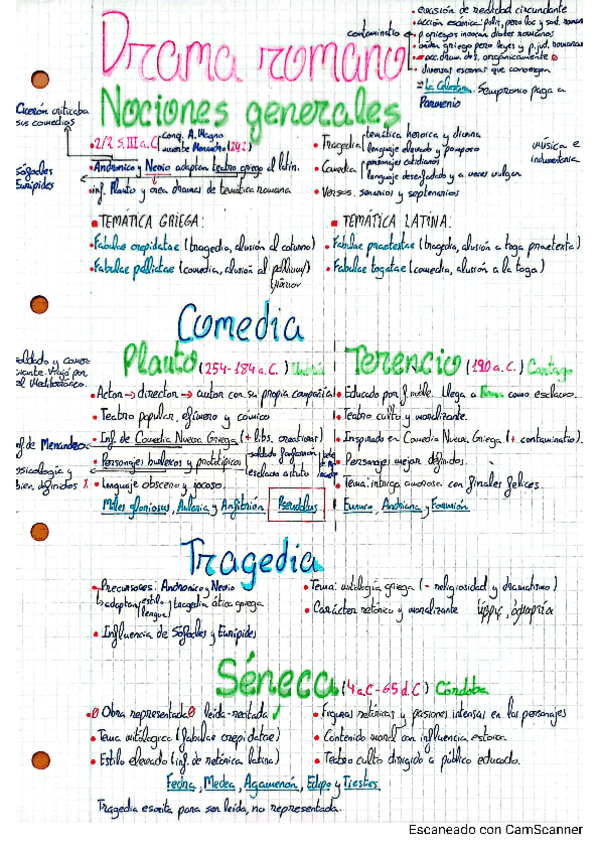 Drama romano
contaminatio
• evasión de realidad circundante
• acción escénica: polis, pero loc y sod. roman
• p griegos invocan dioses romanos
• orden griego pero leyes y p. jud. romanas
• diversas escenas que convergen
⇒ La Celestina. Sempronio paga a
Parmenio
Nociones generales
Cicerón criticaba
sus comedias
• 2/2 S. III a.C
Conq. A. Magno
muerte Menandro (292)
• Andronico y Nevio adaptan teatro griego al latín.
Sófocles
Eurípides
• inf. Plauto y crea dramas de temática romana
• Tragedia
temática heroica y divina
lenguaje elevado y pomposo
• Comedia
personajes cotidianos
lenguaje desenfadado y a veces vulgar
• Versos: senarios y septenarios
música e
indumentaria
• TEMÁTICA GRIEGA:
• Fabulae crepidatae (tragedia, alusión al coturno)
• Fabulae palliatae (comedia, alusión al pallium)
• TEMÁTICA LATINA:
• Fabulae praetextae (tragedia, alusión a toga praetexta)
• Fabulae togatae (comedia, alusión a la toga)
Comedia
Plauto (254-184 a.C) Umbría
soldado y comer
ciante. Viajó por
el Mediterráneo.
• Actor → director → autor con su propia compañía
• Teatro popular, efímero y cómico
• Inf. de Comedia Nueva Griega (+ libs. creativas)
inf de Menandro
• Personajes burlescos y prototípicos
soldado fanfarrón
esclavo astuto
psicología y
bien definidos X
• Lenguaje obsceno y jocoso.
Miles gloriosus, Aulularia y Anfitrión. Pseudolus
Terencio (190 a.C.) Cartago
• Educado por f. noble. Llega a Roma como esclavo.
• Teatro culto y moralizante.
• Inspirado en Comedia Nueva Griega (+ contaminatio).
• Personajes mejor definidos.
• Tema: intriga amorosa con finales felices.
Eunuco, Andriana y Formión
Tragedia
• Precursores: Andronico y Nevio
↳ adaptan estilo lengua tragedia ática griega
• Influencia de Sófocles y Eurípides
• Tema: mitología griega (- religiosidad y dramatismo)
• Carácter retórico y moralizante ὕβρις, ἁμαρτία
Séneca (4 a.C - 65 d.C) Córdoba
• Ø Obra representada Ø leída-recitada ✓
• Tema mitológico (fabulas crepidatae)
• Estilo elevado (inf. de retórica latina)
• Figuras retóricas y pasiones intensas en los personajes
• Contenido moral con influencia estoica.
• Teatro culto dirigido a público educado.
Fedra, Medea, Agamenón, Edipo y Tiestes
Tragedia escrita para ser leída, no representada.
Escaneado con CamScanner